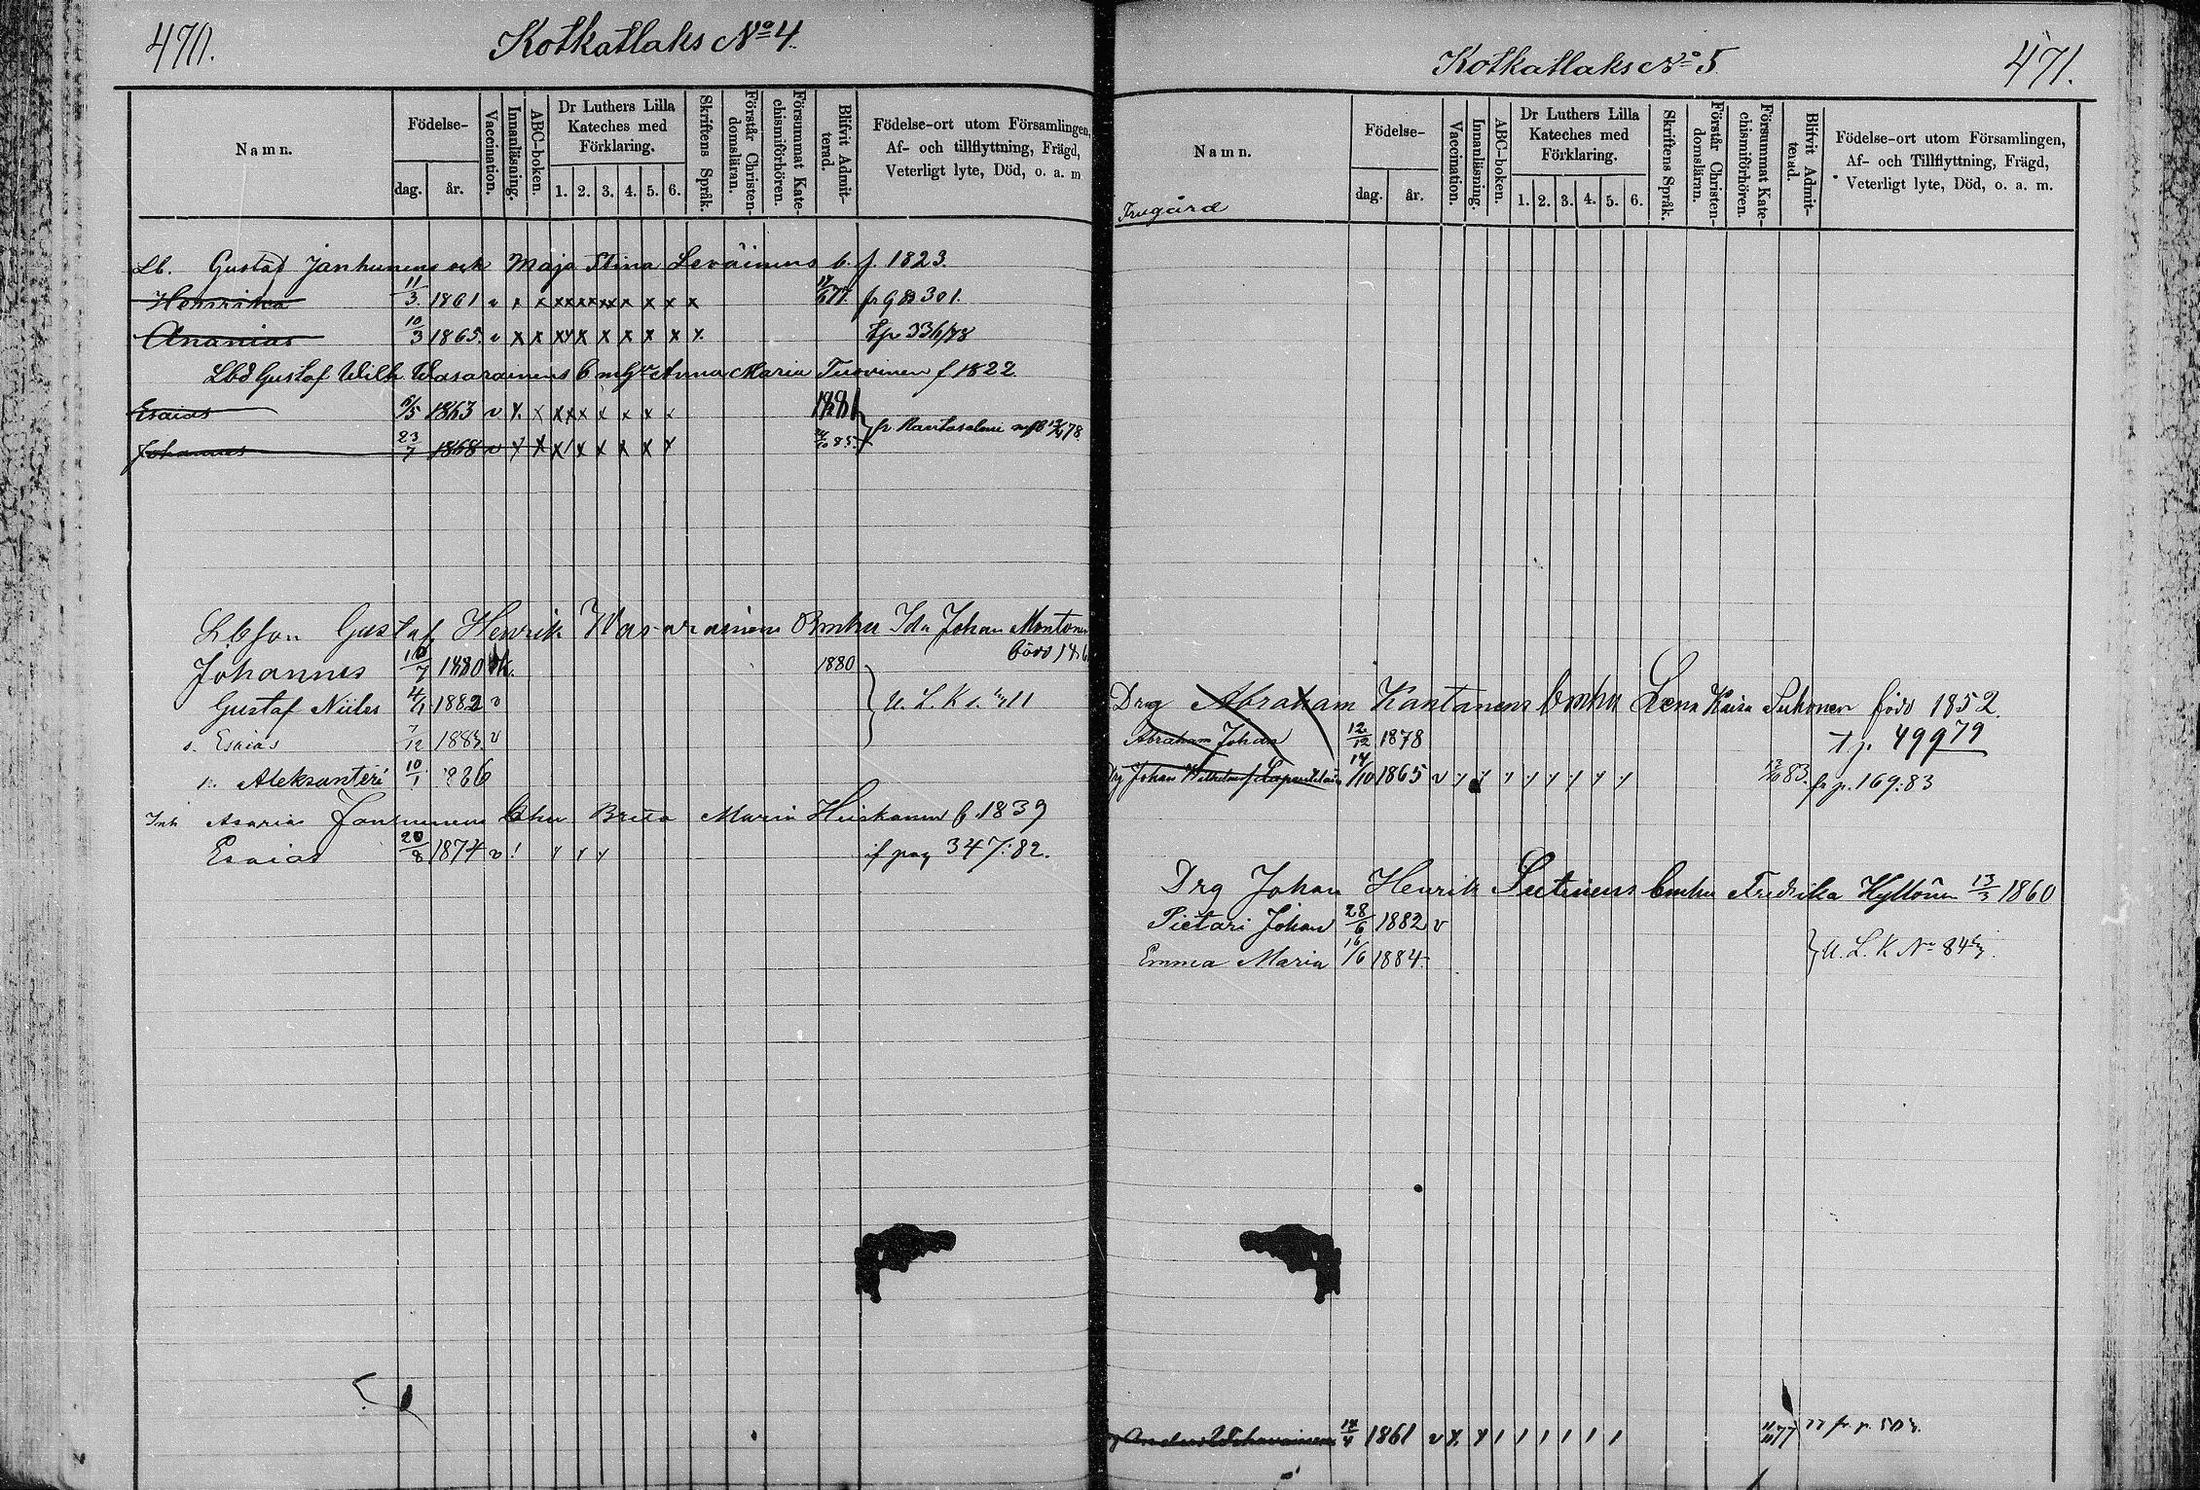 470.
Kotkatlaks No 4.
Namn.
Födelse-
dag.
år.
Vaccination.
Innanläsning.
ABC-boken.
Dr Luthers Lilla
Kateches med
Förklaring.
1. 2. 3. 4. 5. 6.
Skriftens Språk.
Förstår Christen-
domsläran.
Försummat Kate-
chismiförhören.
Blifvit Admit-
terad.
Födelse-ort utom Församlingen,
Af- och tillflyttning, Frägd,
Veterligt lyte, Död, o. a. m
Lb. Gustaf Janhunens och Maja Stina Leväinens b. f. 1823.
Henrika 11/3 1861 v x x x x x x x x x 77 fr 301.
Ananias 10/3 1865. v x x x x x x x x x
Lbd Gustaf Wilh. Wasarainens b m Anna Maria Tuovinen f 1822.
Esaias 1863 v x x x x x x x x 1881
Johannes 23/7 1868 v x x x x x x x x 85 fr Rantasalmi 78
Lbson Gustaf Henrik Wasarainens Bmhu Ida Johan Montonen
född
Johannes 10/7 1880 1880
Gustaf Niiles 4/1 1882 v U. L. K.
s. Esaias 7/12 1883 v
s. Aleksanteri 10/1 1886
Inh Asarias Janhunens bhu Brita Maria Hiiskanen f. 1839
Esaias 20/8 1874 v ! x x x if pag 347:82.
Kotkatlaks No 5
471.
Namn.
Födelse-
dag.
år.
Vaccination.
Innanläsning.
ABC-boken.
Dr Luthers Lilla
Kateches med
Förklaring.
1. 2. 3. 4. 5. 6.
Skriftens Språk.
Förstår Christen-
domsläran.
Försummat Kate-
chismiförhören.
Blifvit Admit-
terad.
Födelse-ort utom Församlingen,
Af- och Tillflyttning, Frägd,
Veterligt lyte, Död, o. a. m.
Frugård
Drng Abraham Kantanens bmhu Lena Kaisa Suhonen född 1852.
Abraham Johan 12/12 1878 499 79
Drg Johan Wilhelm 14/10 1865 v 83. fr p. 169:83
Drg Johan Henrik bmhu Fredrika Hyttönen 13/3 1860
Pietari Johan 28/6 1882 v
Emma Maria 16/6 1884. U. L. K No 84
1861 v x x 1 1 1 1 1 1 77 fr. p.